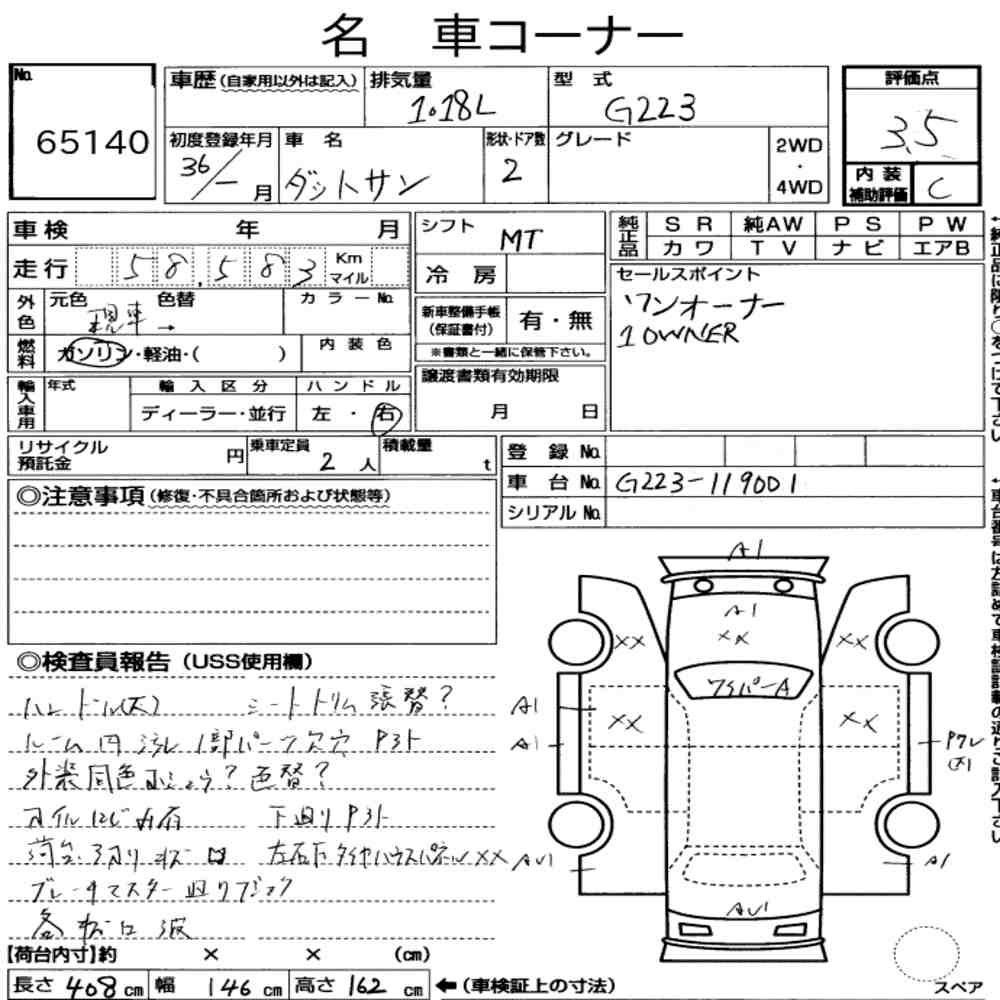 名 車コーナー
No. 65140
車歴(自家用以外は記入) 排気量 1.18L 型式 G223
初度登録年月 36/― 月 車名 ダットサン 形状・ドア数 2 グレード 2WD・4WD
評価点 3.5
内装補助評価 C
車検 年 月
走行 58,583 Km マイル
外色 元色 現車 → 色替 カラーNo.
燃料 ガソリン・軽油・( ) 内装色
輸入車用 年式 輸入区分 ディーラー・並行 ハンドル 左・右
シフト MT
冷房
新車整備手帳(保証書付) 有・無
※書類と一緒に保管下さい。
譲渡書類有効期限 月 日
純正品 SR 純AW PS PW
カワ TV ナビ エアB
セールスポイント
ワンオーナー
1 OWNER
リサイクル預託金 円 乗車定員 2人 積載量 t
登録No.
車台No. G223-119001
シリアルNo.
◎注意事項(修復・不具合箇所および状態等)
◎検査員報告(USS使用欄)
ハンドル(大) シートトリム張替?
ルーム内 汚レ 1部パーツ欠穴 P3ト
外装同色 色替?
オイルにじみ有 下廻りP3ト
荷台 3 左右下 タイヤハウスパネルXX
ブレーキマスター廻り
各
【荷台内寸】約 × × (cm)
長さ 408 cm 幅 146 cm 高さ 162 cm ←(車検証上の寸法)
A1
A1
XX XX XX
ワイパーA
A1 XX XX
A1 Pワレ(大)
AU1 A1
AU1
スペア